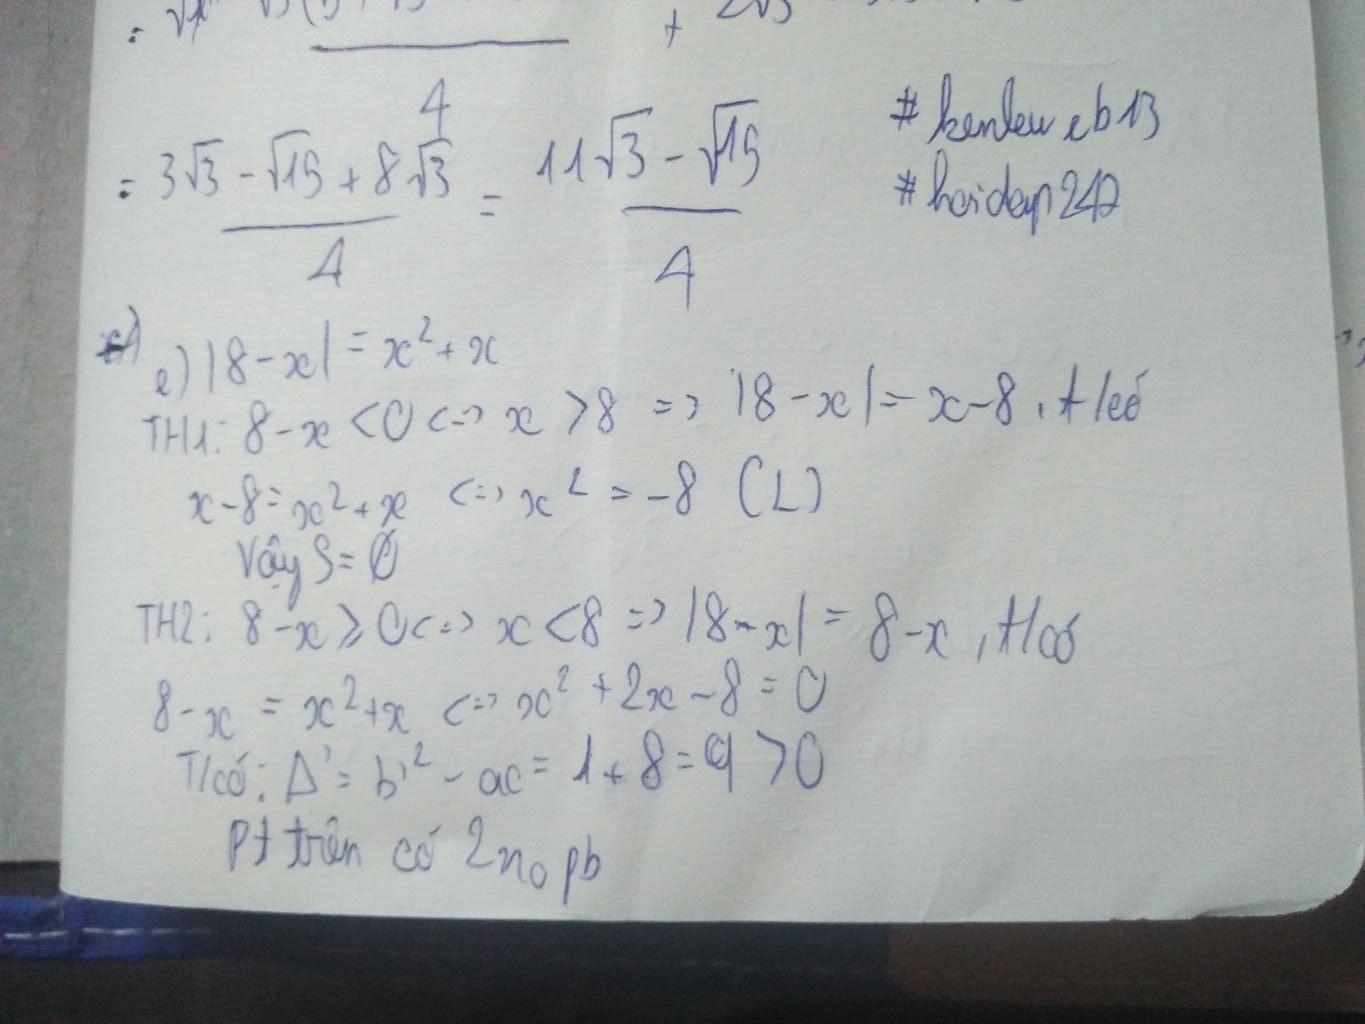 4
= 3√3 - √15 + 8√3 / 4 = 11√3 - √15 / 4
#kenlew eb13
#hoidap247
e) |8-x| = x² + x
TH1: 8-x < 0 <=> x > 8 => |8-x| = x-8, t/có
x-8 = x² + x <=> x² = -8 (L)
Vậy S = Ø
TH2: 8-x ≥ 0 <=> x < 8 => |8-x| = 8-x, t/có
8-x = x² + x <=> x² + 2x - 8 = 0
T/có: Δ' = b'² - ac = 1 + 8 = 9 > 0
Pt trên có 2 n₀ pb